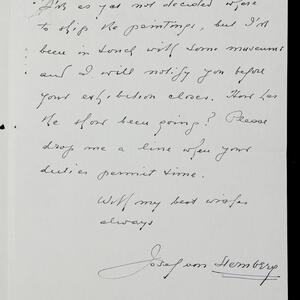 I've as yet not decided where
to ship the paintings, but I've
been in touch with some museums
and I will notify you before
your exhibition closes. How has
the show been going? Please
drop me a line when your
duties permit time.
With my best wishes
always
Josef von Sternberg